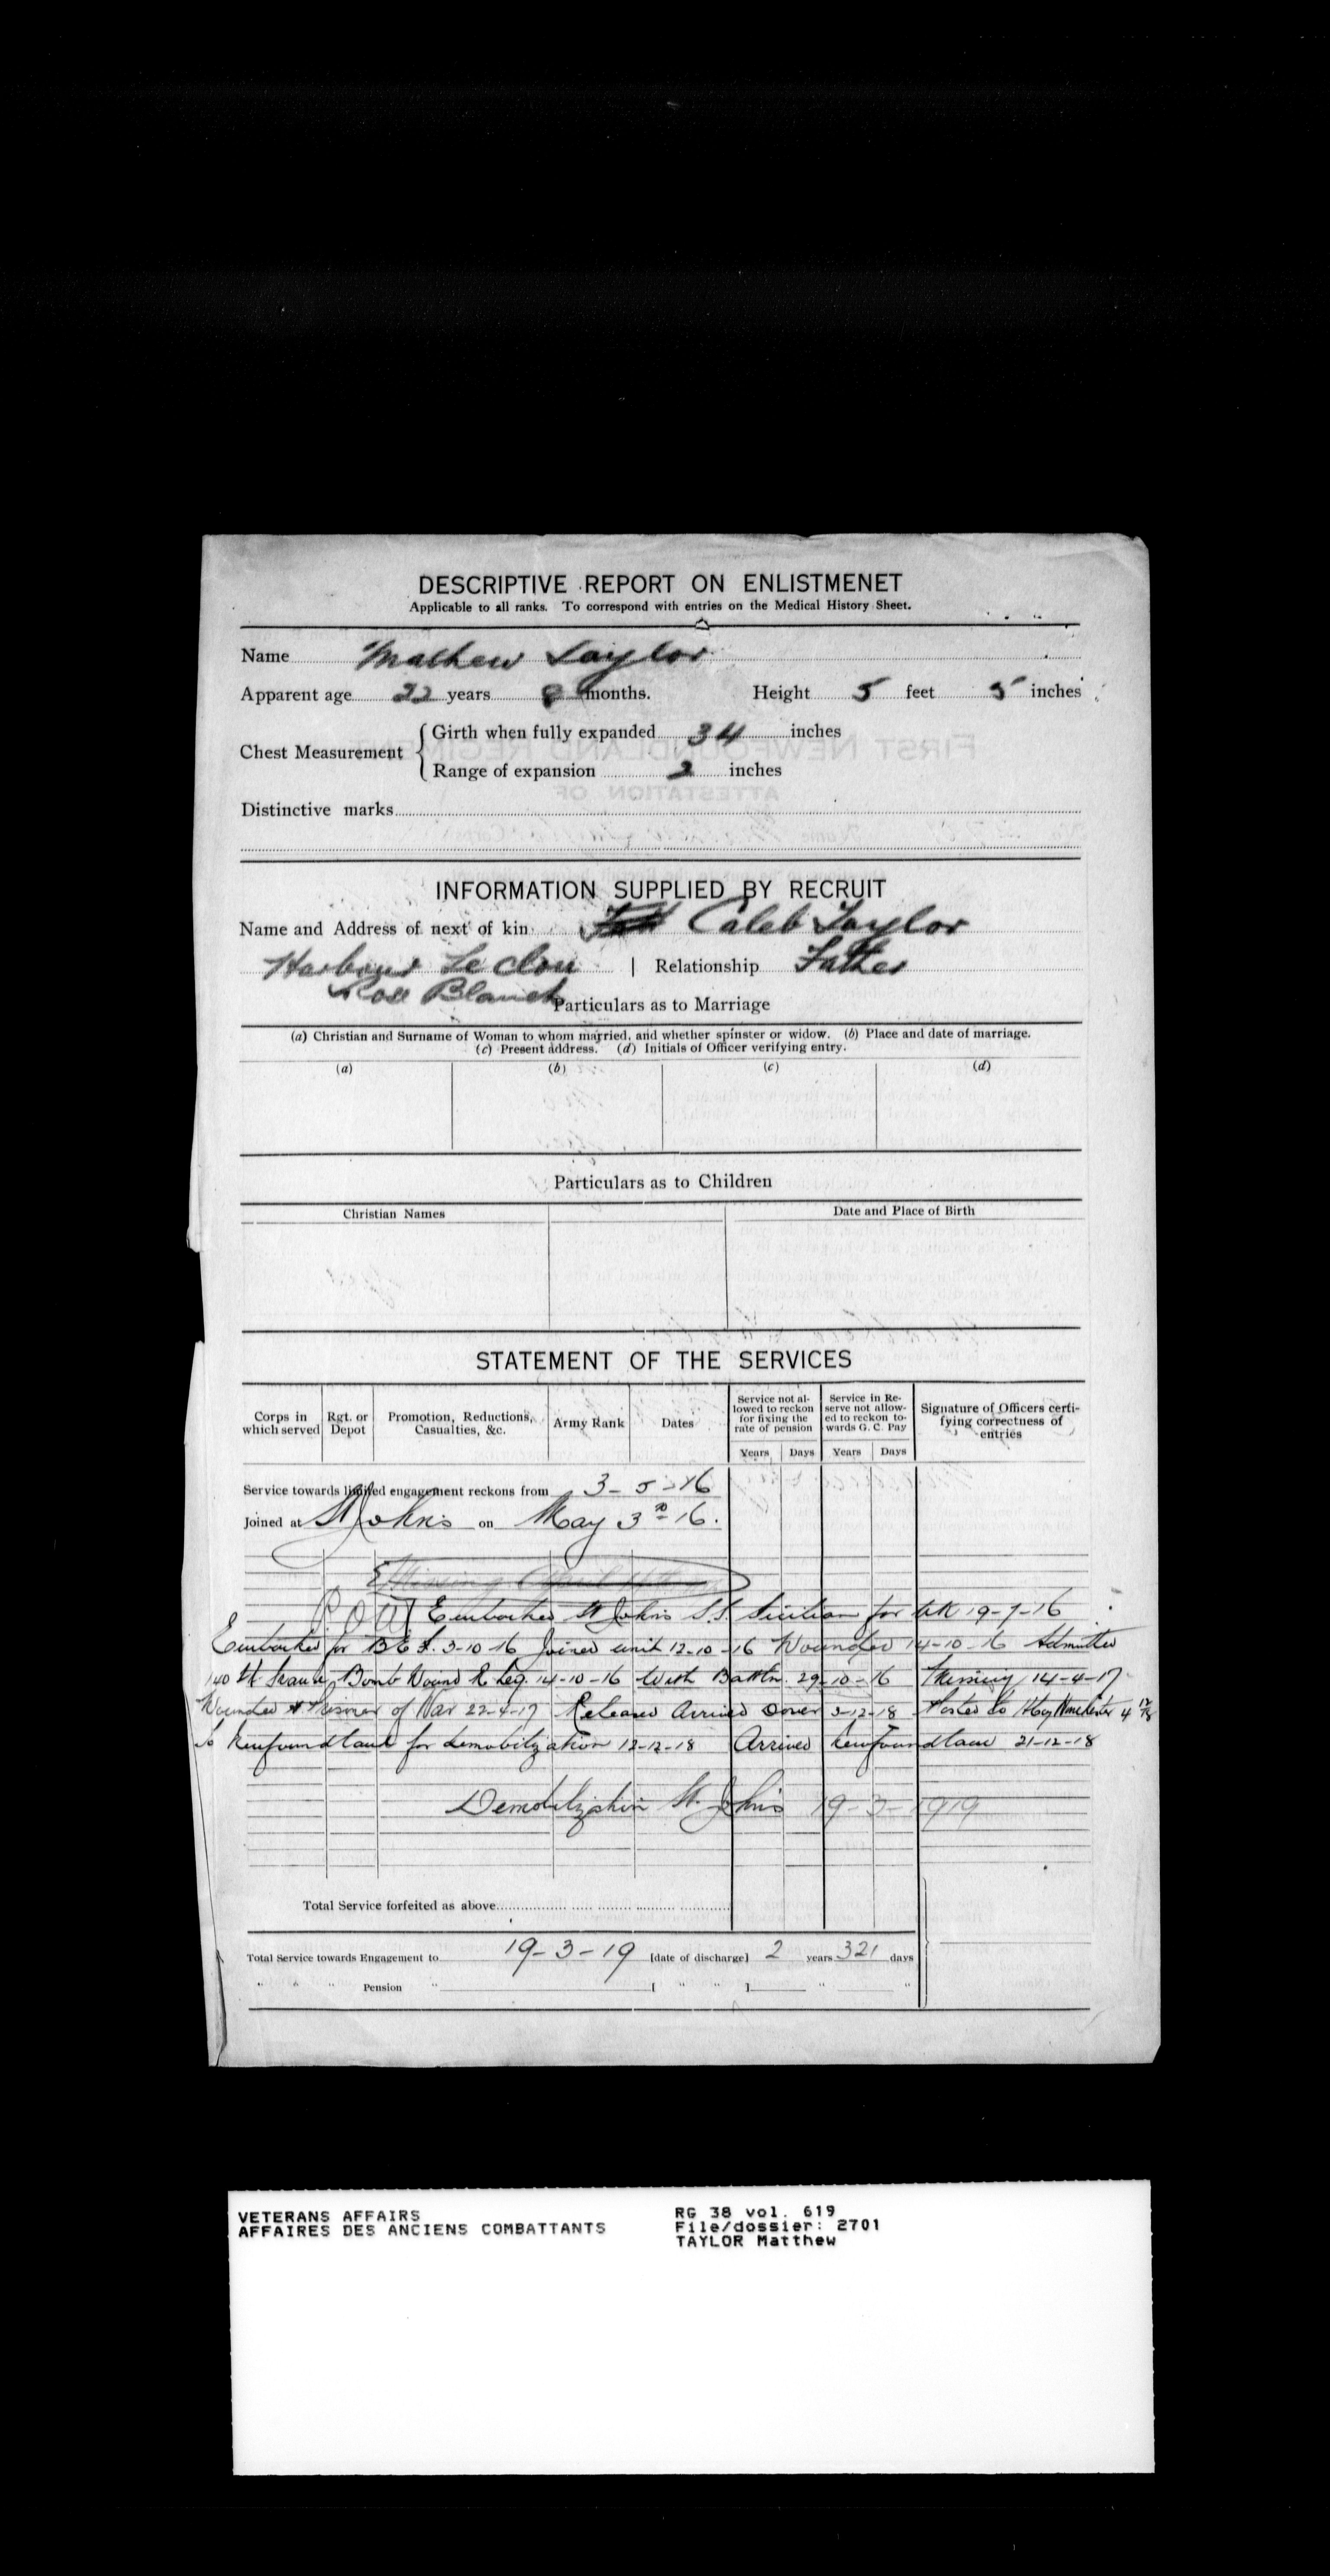 DESCRIPTIVE REPORT ON ENLISTMENET
Applicable to all ranks. To correspond with entries on the Medical History Sheet.
Name Mathew Taylor
Apparent age 22 years 8 months. Height 5 feet 5 inches
Chest Measurement { Girth when fully expanded 34 inches
Range of expansion 2 inches
Distinctive marks
INFORMATION SUPPLIED BY RECRUIT
Name and Address of next of kin Caleb Taylor
Harbour Le Cou | Relationship Father
Rose Blanch
Particulars as to Marriage
(a) Christian and Surname of Woman to whom married, and whether spinster or widow. (b) Place and date of marriage.
(c) Present address. (d) Initials of Officer verifying entry.
(a) (b) (c) (d)
Particulars as to Children
Christian Names Date and Place of Birth
STATEMENT OF THE SERVICES
Corps in which served Rgt. or Depot Promotion, Reductions, Casualties, &c. Army Rank Dates Service not allowed to reckon for fixing the rate of pension Service in Reserve not allowed to reckon towards G. C. Pay Signature of Officers certifying correctness of entries
Years Days Years Days
Service towards limited engagement reckons from 3-5-16
Joined at St Johns on May 3rd 16.
Missing April
P.O.W. Embarked St Johns S.S. Sicilian for UK 19-7-16
Embarked for B E F. 3-10-16 Joined unit 12-10-16 Wounded 14-10-16 Admitted
140 Bomb Wound R Leg. 14-10-16 With Battn. 29-10-16 Missing 14-4-17
Wounded & Prisoner of War 22-4-17 Released Arrived Dover 3-12-18 Posted to Winchester 4 12/18
To Newfoundland for demobilization 12-12-18 Arrived Newfoundland 21-12-18
Demobilization St. Johns 19-3-1919
Total Service forfeited as above
Total Service towards Engagement to 19-3-19 [date of discharge] 2 years 321 days
" " " Pension " [ " " ] " "
VETERANS AFFAIRS RG 38 vol. 619
AFFAIRES DES ANCIENS COMBATTANTS File/dossier: 2701
TAYLOR Matthew